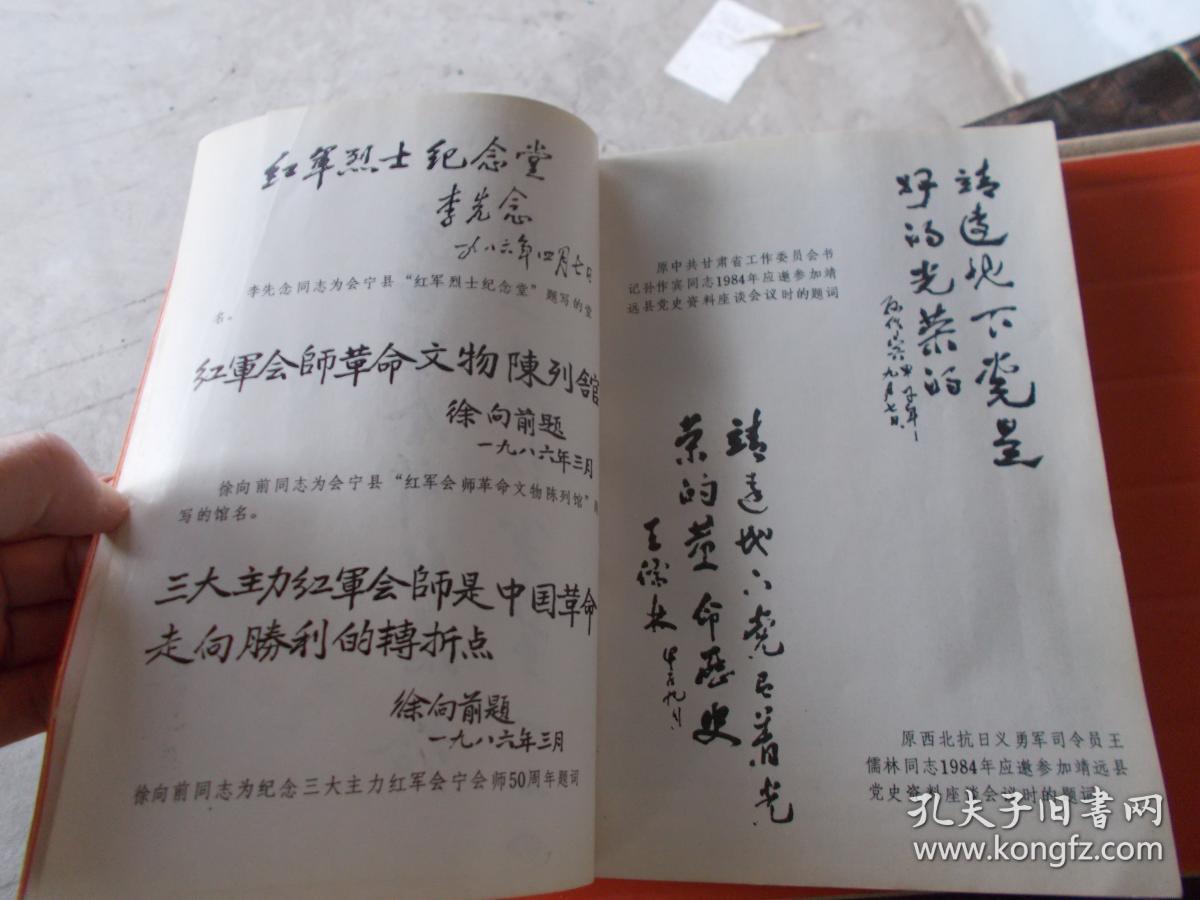 红軍烈士纪念堂
李先念
一九八六年四月七日
李先念同志为会宁县“红军烈士纪念堂”题写的堂
名。
红軍会師革命文物陳列舘
徐向前题
一九八六年三月
徐向前同志为会宁县“红军会师革命文物陈列馆”
写的馆名。
三大主力红軍会師是中国革命
走向勝利的轉折点
徐向前题
一九八六年三月
徐向前同志为纪念三大主力红军会宁会师50周年题词
靖远地下党是
好的光荣的
原中共甘肃省工作委员会书
记孙作宾同志1984年应邀参加靖
远县党史资料座谈会议时的题词
靖远地下党有着光
荣的革命歷史
王儒林
原西北抗日义勇军司令员王
儒林同志1984年应邀参加靖远县
党史资料座谈会议时的题词
孔夫子旧书网
www.kongfz.com